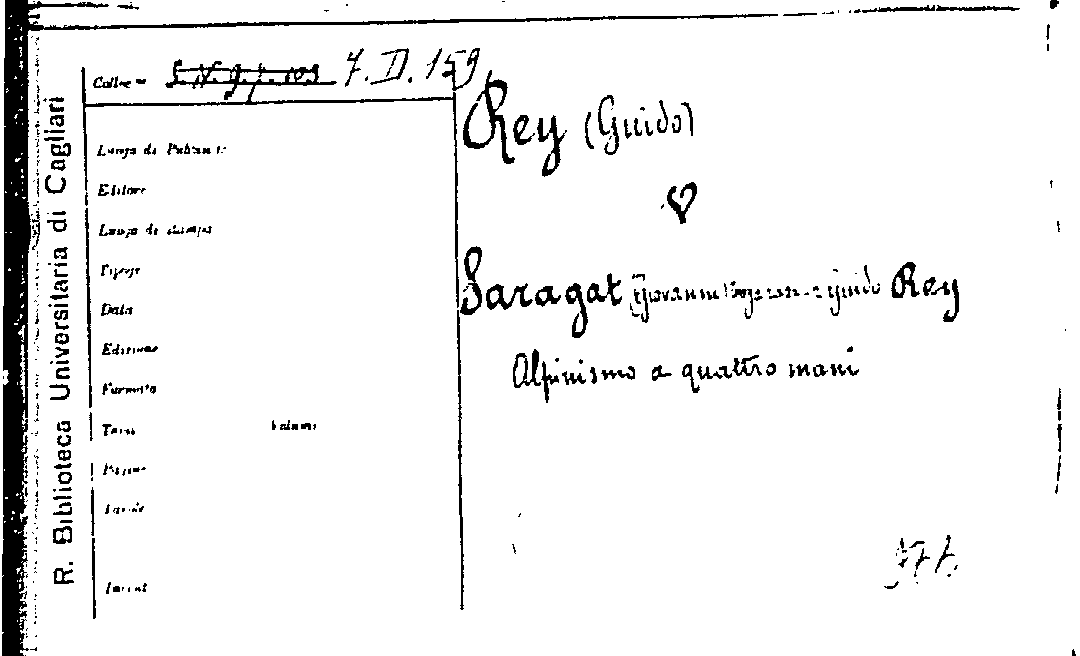 R. Biblioteca Universitaria di Cagliari
7. D. 159
Luogo di
Editore
Luogo di stampa
Data
Edizione
Formato
Tomi Volumi
Pagine
Tavole
Rey (Guido)
Saragat (Giovanni e Guido Rey
Alpinismo a quattro mani